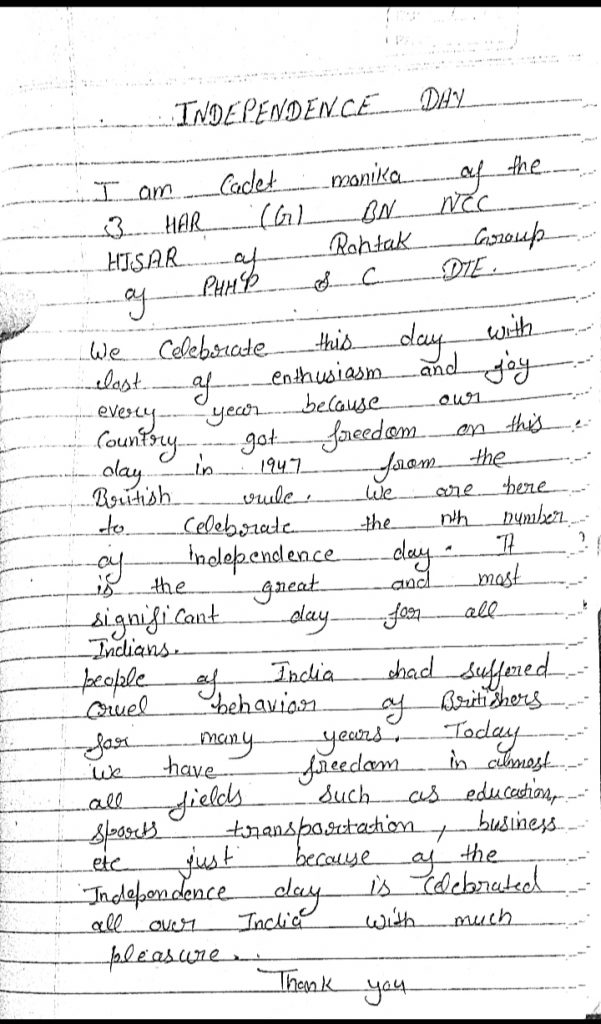 INDEPENDENCE DAY
I am Cadet monika of the
3 HAR (G) BN NCC
HISAR of Rohtak Group
of PHHP & C DTE.
We Celebrate this day with
lost of enthusiasm and joy
every year because our
Country got freedom on this
day in 1947 from the
British rule. We are here
to Celebrate the nth number
of independence day. It
is the great and most
significant day for all
Indians.
people of India had suffered
cruel behavior of Britishers
for many years. Today
we have freedom in almost
all fields such as education,
sports transportation, business
etc just because of the
Independence day is Celebrated
all over India with much
pleasure..
Thank you